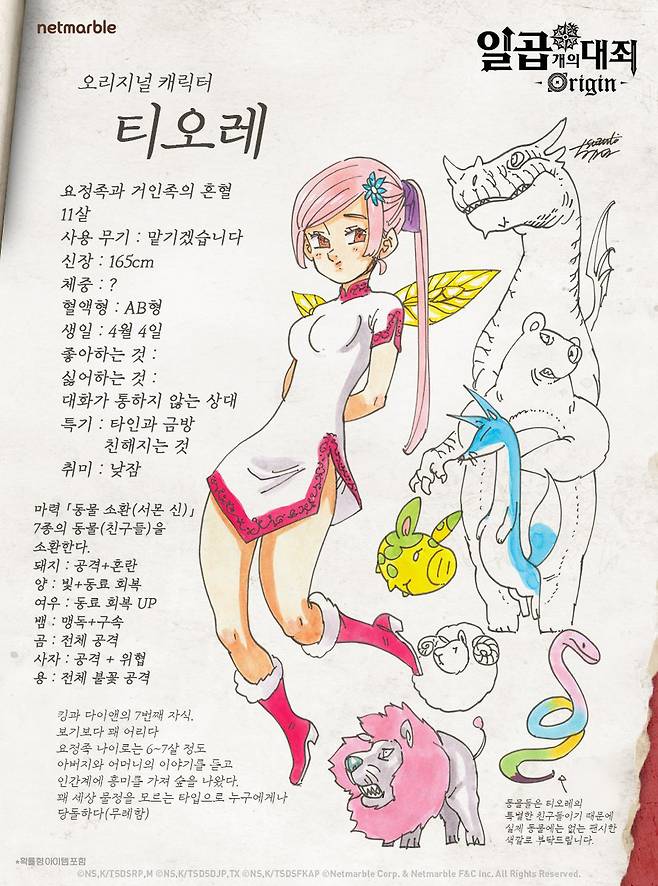 netmarble
일곱개의대죄
Origin
오리지널 캐릭터
티오레
요정족과 거인족의 혼혈
11살
사용 무기 : 맡기겠습니다
신장 : 165cm
체중 : ?
혈액형 : AB형
생일 : 4월 4일
좋아하는 것 :
싫어하는 것 :
대화가 통하지 않는 상대
특기 : 타인과 금방
친해지는 것
취미 : 낮잠
마력 「동물 소환(서몬 신)」
7종의 동물(친구들)을
소환한다.
돼지 : 공격+혼란
양 : 빛+동료 회복
여우 : 동료 회복 UP
뱀 : 맹독+구속
곰 : 전체 공격
사자 : 공격 + 위협
용 : 전체 불꽃 공격
킹과 다이앤의 7번째 자식.
보기보다 꽤 어리다
요정족 나이로는 6~7살 정도
아버지와 어머니의 이야기를 듣고
인간계에 흥미를 가져 숲을 나왔다.
꽤 세상 물정을 모르는 타입으로 누구에게나
당돌하다(무례함)
동물들은 티오레의
특별한 친구들이기 때문에
실제 동물에는 없는 팬시한
색깔로 부탁드립니다.
*확률형 아이템 포함
©NS,K/TSDSRP,M ©NS,K/TSDSDJP,TX ©NS,K/TSDSFKAP ©Netmarble Corp. & Netmarble F&C inc. All Rights Reserved.